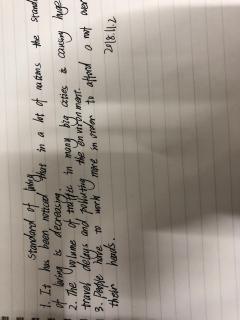 standard of living
1. It has been noticed that in a lot of nations the stand
of living is decreasing.
2. The volume of traffic in many big cities is causing huge
travel delays and polluting the environment.
3. People have to work more in order to afford a roof over
their heads.
2018.11.2